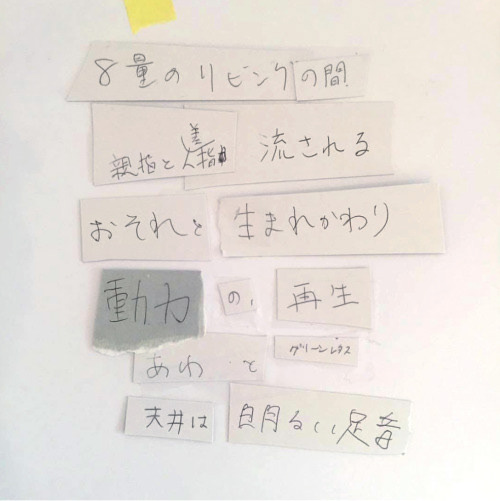 8量のリビングの間
親指と人差指 流される
おそれと 生まれかわり
動力 の、 再生
あわ と グリーンレタス
天井は 明るい足音